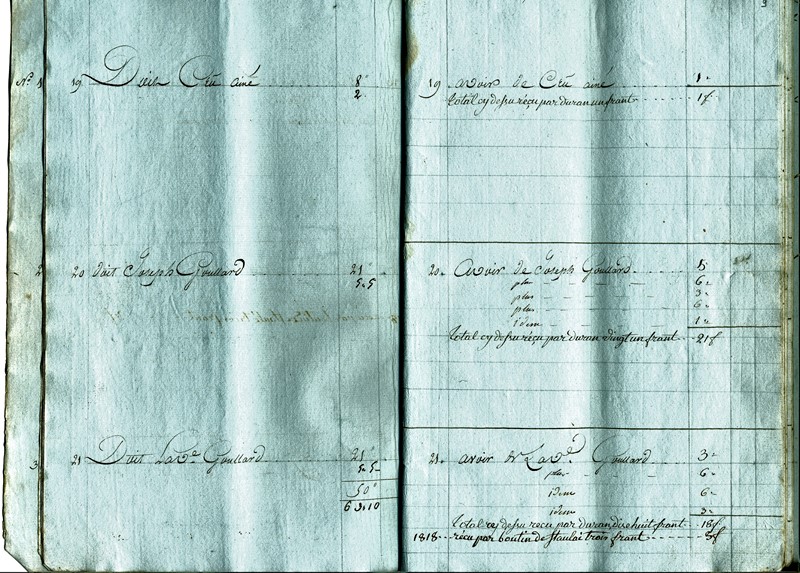 3
N° 1 19 Doit Cru ainé 8"
2
2 20 doit Joseph Goullard 21"
5.5
3 21 Doit La Ve Goullard 21"
5.5
50"
63.10
19 avoir de Cru ainé 1"
total cy desu reçu par duran un frant 1f
20 avoir de Joseph Goullard 5
plus 6"
plus 3"
plus 6"
idem 1"
total cy desu reçu par duran vingt un frant 21f
21 avoir de La Ve Goullard 3"
plus 6"
idem 6"
idem 3"
Total cy desu reçu par duran dix huit frant 18f
1818 reçu par boutin de trois frant 3f